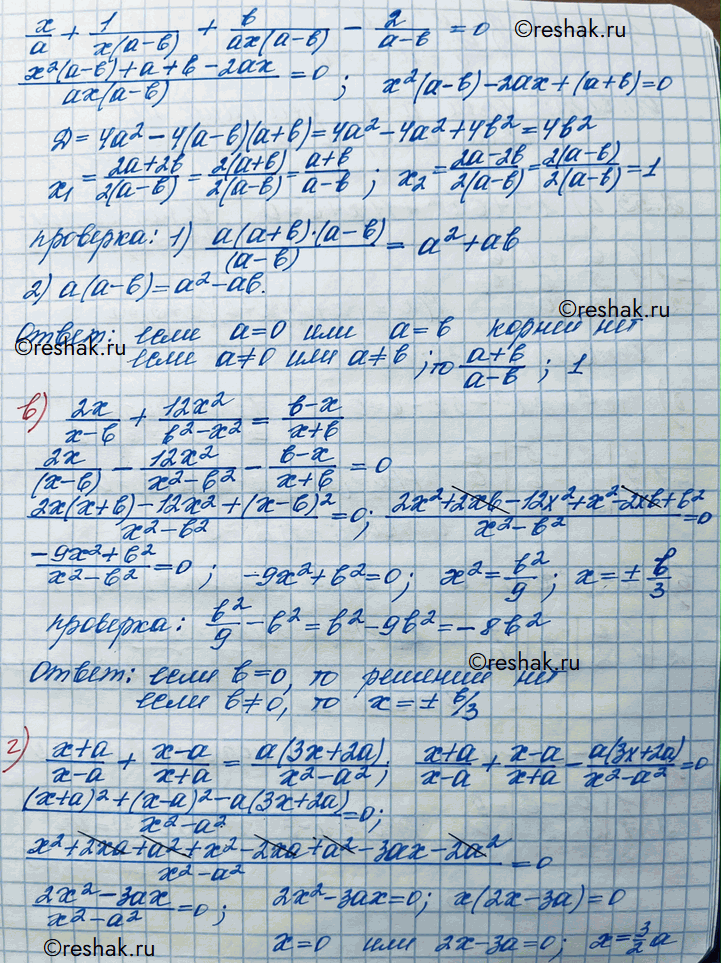 x/a + 1/(x(a-в)) + в/(ax(a-в)) - 2/(a-в) = 0 ©reshak.ru
(x²(a-в)+a+в-2ax)/(ax(a-в)) = 0; x²(a-в)-2ax+(a+в)=0
Д=4a²-4(a-в)(a+в)=4a²-4a²+4в²=4в²
x₁=(2a+2в)/(2(a-в))=(2(a+в))/(2(a-в))=(a+в)/(a-в); x₂=(2a-2в)/(2(a-в))=(2(a-в))/(2(a-в))=1
проверка: 1) (a(a+в)·(a-в))/(a-в) = a²+aв
2) a(a-в)=a²-aв.
©reshak.ru
Ответ: если a=0 или a=в корней нет
©reshak.ru
если a≠0 или a≠в; то (a+в)/(a-в); 1
в) 2x/(x-в) + 12x²/(в²-x²) = (в-x)/(x+в)
2x/(x-в) - 12x²/(x²-в²) - (в-x)/(x+в) = 0
(2x(x+в)-12x²+(x-в)²)/(x²-в²)=0; (2x²+2xв-12x²+x²-2xв+в²)/(x²-в²)=0
(-9x²+в²)/(x²-в²)=0; -9x²+в²=0; x²=в²/9; x=±в/3
проверка: в²/9-в²=в²-9в²=-8в²
©reshak.ru
Ответ: если в=0, то решений нет
если в≠0, то x=±в/3
г) (x+a)/(x-a) + (x-a)/(x+a) = a(3x+2a)/(x²-a²); (x+a)/(x-a)+(x-a)/(x+a)-a(3x+2a)/(x²-a²)=0
((x+a)²+(x-a)²-a(3x+2a))/(x²-a²)=0;
(x²+2xa+a²+x²-2xa+a²-3ax-2a²)/(x²-a²)=0
(2x²-3ax)/(x²-a²)=0; 2x²-3ax=0; x(2x-3a)=0
©reshak.ru x=0 или 2x-3a=0; x=3/2a